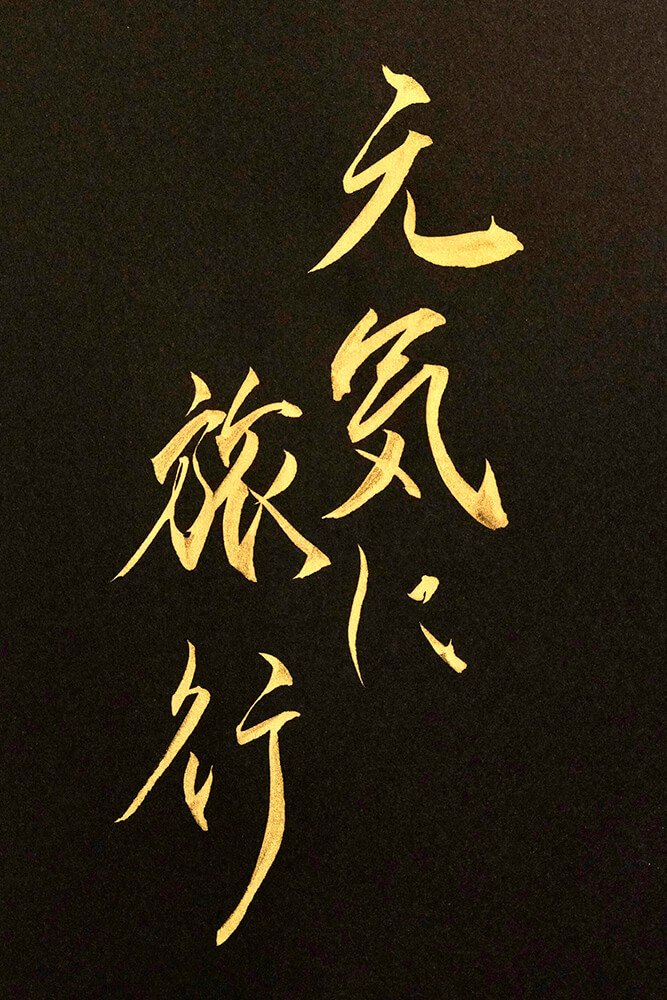 元気に
旅行